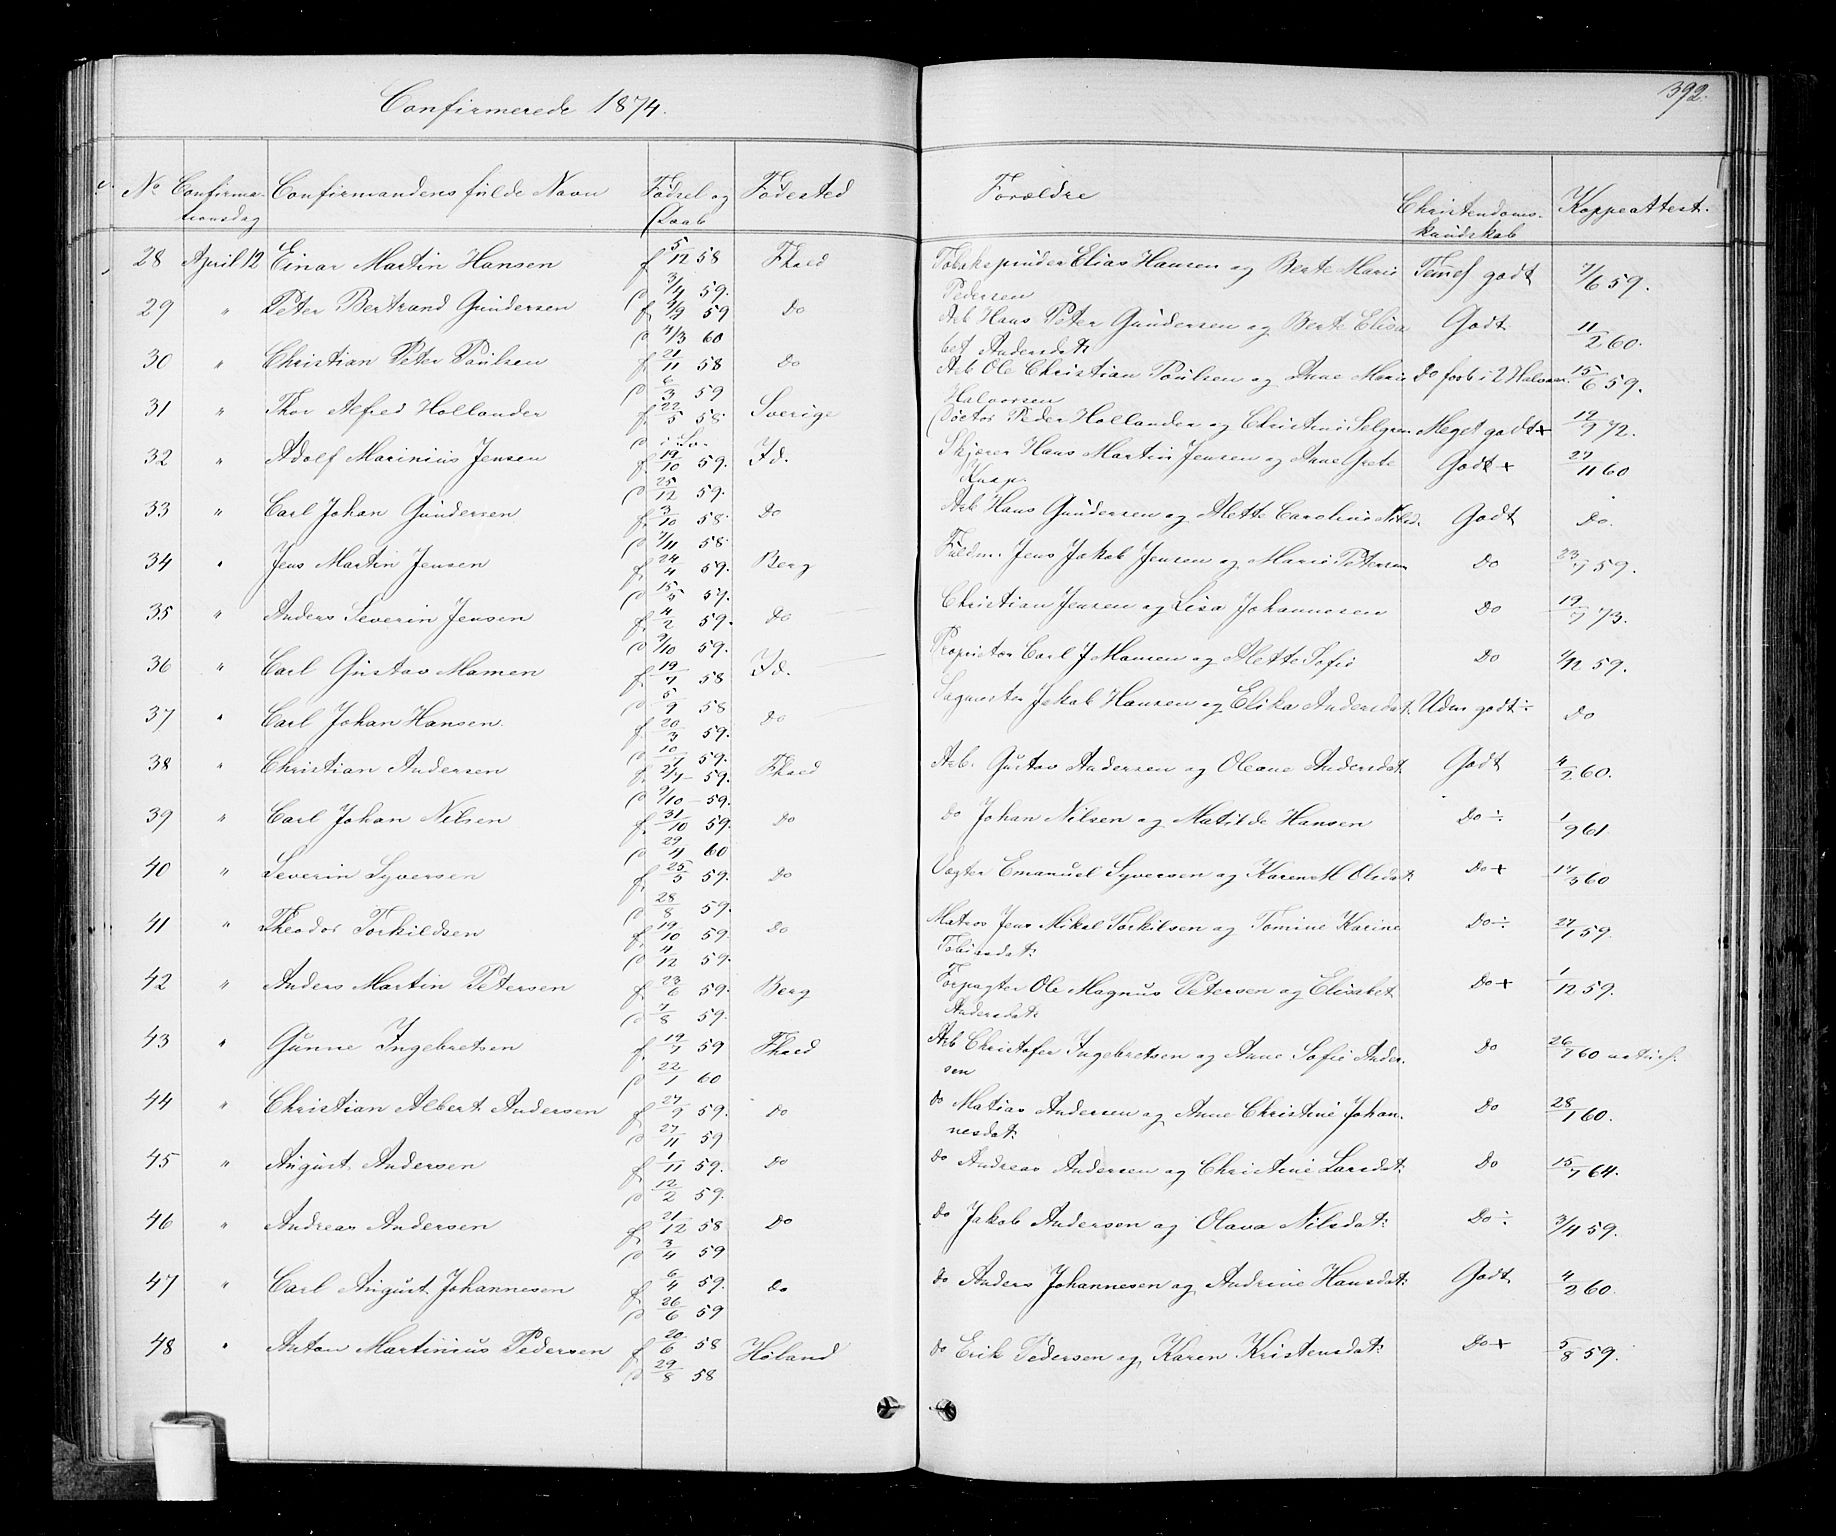 Confirmerede 1874.
392.
No Confirmationsdag Confirmandens fulde Navn Fødsel og Daab Fødested Forældre Christendomskundskab Koppeattest.
28 April 12 Einar Martin Hansen f 5/12 58 Fhald Tobakspinder Elias Hansen og Berte Marie Temel godt 7/6 59.
D 3/4 59. Pedersen
29 " Peter Bertrand Gundersen f 4/9 59 Do Arb Hans Peter Gundersen og Berte Elisa Godt 11/2 60.
D 4/3 60 bet Andersdat:
30 " Christian Peter Paulsen f 21/11 58 Do Arb Ole Christian Poulsen og Anne Marie Do forb i 2 Halvaar. 15/6 59.
D 6/3 59 Halvorsen
31 " Thor Alfred Hollander f 22/5 58 Sverige Doctor Peder Hollander og Christine Selgren Meget godt + 12/9 72.
D i Sv.
32 " Adolf Marinius Jensen f 19/10 59. Id. Skjærer Hans Martin Jensen og Anne Grete Godt + 27/11 60
D 25/12 59. Knap.
33 " Carl Johan Gundersen f 3/10 58 Do Arb Hans Gundersen og Mette Caroline Nilsd. Godt Do.
D 7/11 58
34 " Jens Martin Jensen f 24/4 59. Berg Fuldm. Jens Jakob Jensen og Marie Petersen Do 23/7 59.
D 15/5 59.
35 " Anders Severin Jensen f 4/2 59. Do Christian Jensen og Lisa Johannesen Do 19/7 73.
D 2/10 59.
36 " Carl Gustav Mamen f 19/7 58 Id. Proprietær Carl J Mamen og Mette Sofie Do 1/12 59.
D 5/9 58
37 " Carl Johan Hansen. f 20/3 59. Do Sagmester Jakob Hansen og Elika Andersdat. Uden godt ÷ Do
D 10/7 59.
38 " Christian Andersen f 2/7 59. Fhald Arb. Gustav Andersen og Oleane Andersdat. Godt 4/2 60.
D 9/10 59.
39 " Carl Johan Nilsen f 31/10 59. Do Do Johan Nilsen og Matilde Hansen Do ÷ 1/9 61
D 29/4 60
40 " Severin Syversen f 25/5 59. Do Vægter Emanuel Syversen og Karen M Olsdat: Do + 14/3 60
D 28/8 59.
41 " Theodor Torkildsen f 19/10 59 Do Matros Jens Mikal Torkilsen og Tomine Karine Do ÷ 27/1 59.
D 4/12 59. Tobiasdat:
42 " Anders Martin Petersen f 23/6 59. Berg Forpagter Ole Magnus Petersen og Elisabet Do + 1/12 59.
D 7/8 59. Andersdat:
43 " Gunne Ingebretsen f 19/7 59 Fhald Arb Christofer Ingebretsen og Anne Sofie Ander- Do 26/7 60
D 22/1 60 sen
44 " Christian Albert Andersen f 27/9 59. Do Do Matias Andersen og Anne Christine Johan- Do 28/1 60.
D 27/11 59 nesdat:
45 " August Andersen f 1/11 59. Do Do Andreas Andersen og Christine Larsdat: Do 15/7 64.
D 12/2 59.
46 " Andreas Andersen f 21/12 58 Do Do Jakob Andersen og Olava Nilsdat: Do ÷ 3/4 59.
D 3/4 59
47 " Carl August Johannesen f 6/4 59. Do Do Anders Johannesen og Andrine Hansdat: Godt 4/2 60.
D 26/6 59
48 " Anton Martinius Pedersen f 20/6 58 Høland Do Erik Pedersen og Karen Kristensdat: Do + 5/8 59.
D 29/8 58